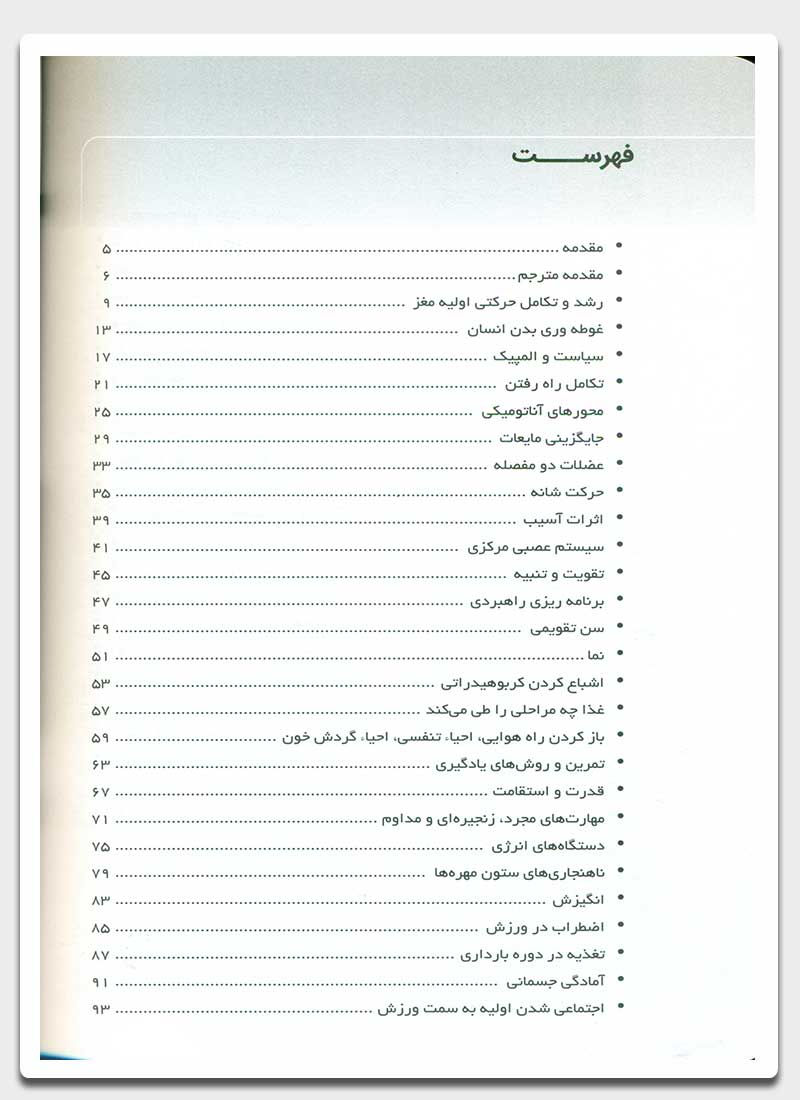 فهرســـت
• مقدمه ........ ۵
• مقدمه مترجم ........ ۶
• رشد و تکامل حرکتی اولیه مغز ........ ۹
• غوطه وری بدن انسان ........ ۱۳
• سیاست و المپیک ........ ۱۷
• تکامل راه رفتن ........ ۲۱
• محورهای آناتومیکی ........ ۲۵
• جایگزینی مایعات ........ ۲۹
• عضلات دو مفصله ........ ۳۳
• حرکت شانه ........ ۳۵
• اثرات آسیب ........ ۳۹
• سیستم عصبی مرکزی ........ ۴۱
• تقویت و تنبیه ........ ۴۵
• برنامه ریزی راهبردی ........ ۴۷
• سن تقویمی ........ ۴۹
• نما ........ ۵۱
• اشباع کردن کربوهیدراتی ........ ۵۳
• غذا چه مراحلی را طی می‌کند ........ ۵۷
• باز کردن راه هوایی، احیاء تنفسی، احیاء گردش خون ........ ۵۹
• تمرین و روش‌های یادگیری ........ ۶۳
• قدرت و استقامت ........ ۶۷
• مهارت‌های مجرد، زنجیره‌ای و مداوم ........ ۷۱
• دستگاه‌های انرژی ........ ۷۵
• ناهنجاری‌های ستون مهره‌ها ........ ۷۹
• انگیزش ........ ۸۳
• اضطراب در ورزش ........ ۸۵
• تغذیه در دوره بارداری ........ ۸۷
• آمادگی جسمانی ........ ۹۱
• اجتماعی شدن اولیه به سمت ورزش ........ ۹۳